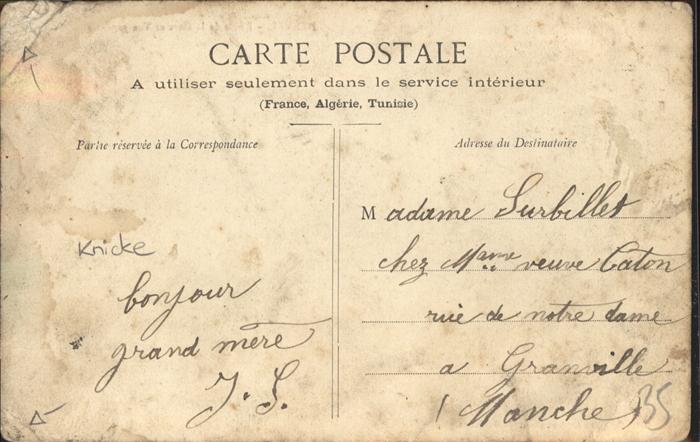 CARTE POSTALE
A utiliser seulement dans le service intérieur
(France, Algérie, Tunisie)
Partie réservée à la Correspondance
Adresse du Destinataire
Knicke
bonjour
grand mère
J. S.
Madame Surbillet
chez Mme veuve Caton
rue de notre dame
a Granville
Manche
35